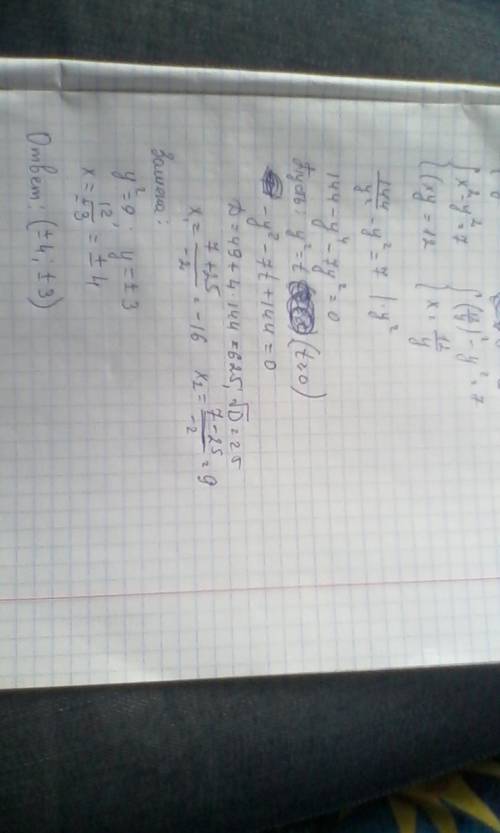 { x² - y² = 7    { (12/y)² - y² = 7
{ xy = 12    { x = 12/y
144/y² - y² = 7 | · y²
144 - y⁴ - 7y² = 0
Пусть: y² = t (t≥0)
- y² - 7t + 144 = 0
D = 49 + 4 · 144 = 625, √D = 25
x = 7 + 25/-2 = -16    x₂ = 7 - 25/-2 = 9
Замена:
y² = 9; y = ±3
x = 12/±3 = ±4
Ответ: (±4; ±3)